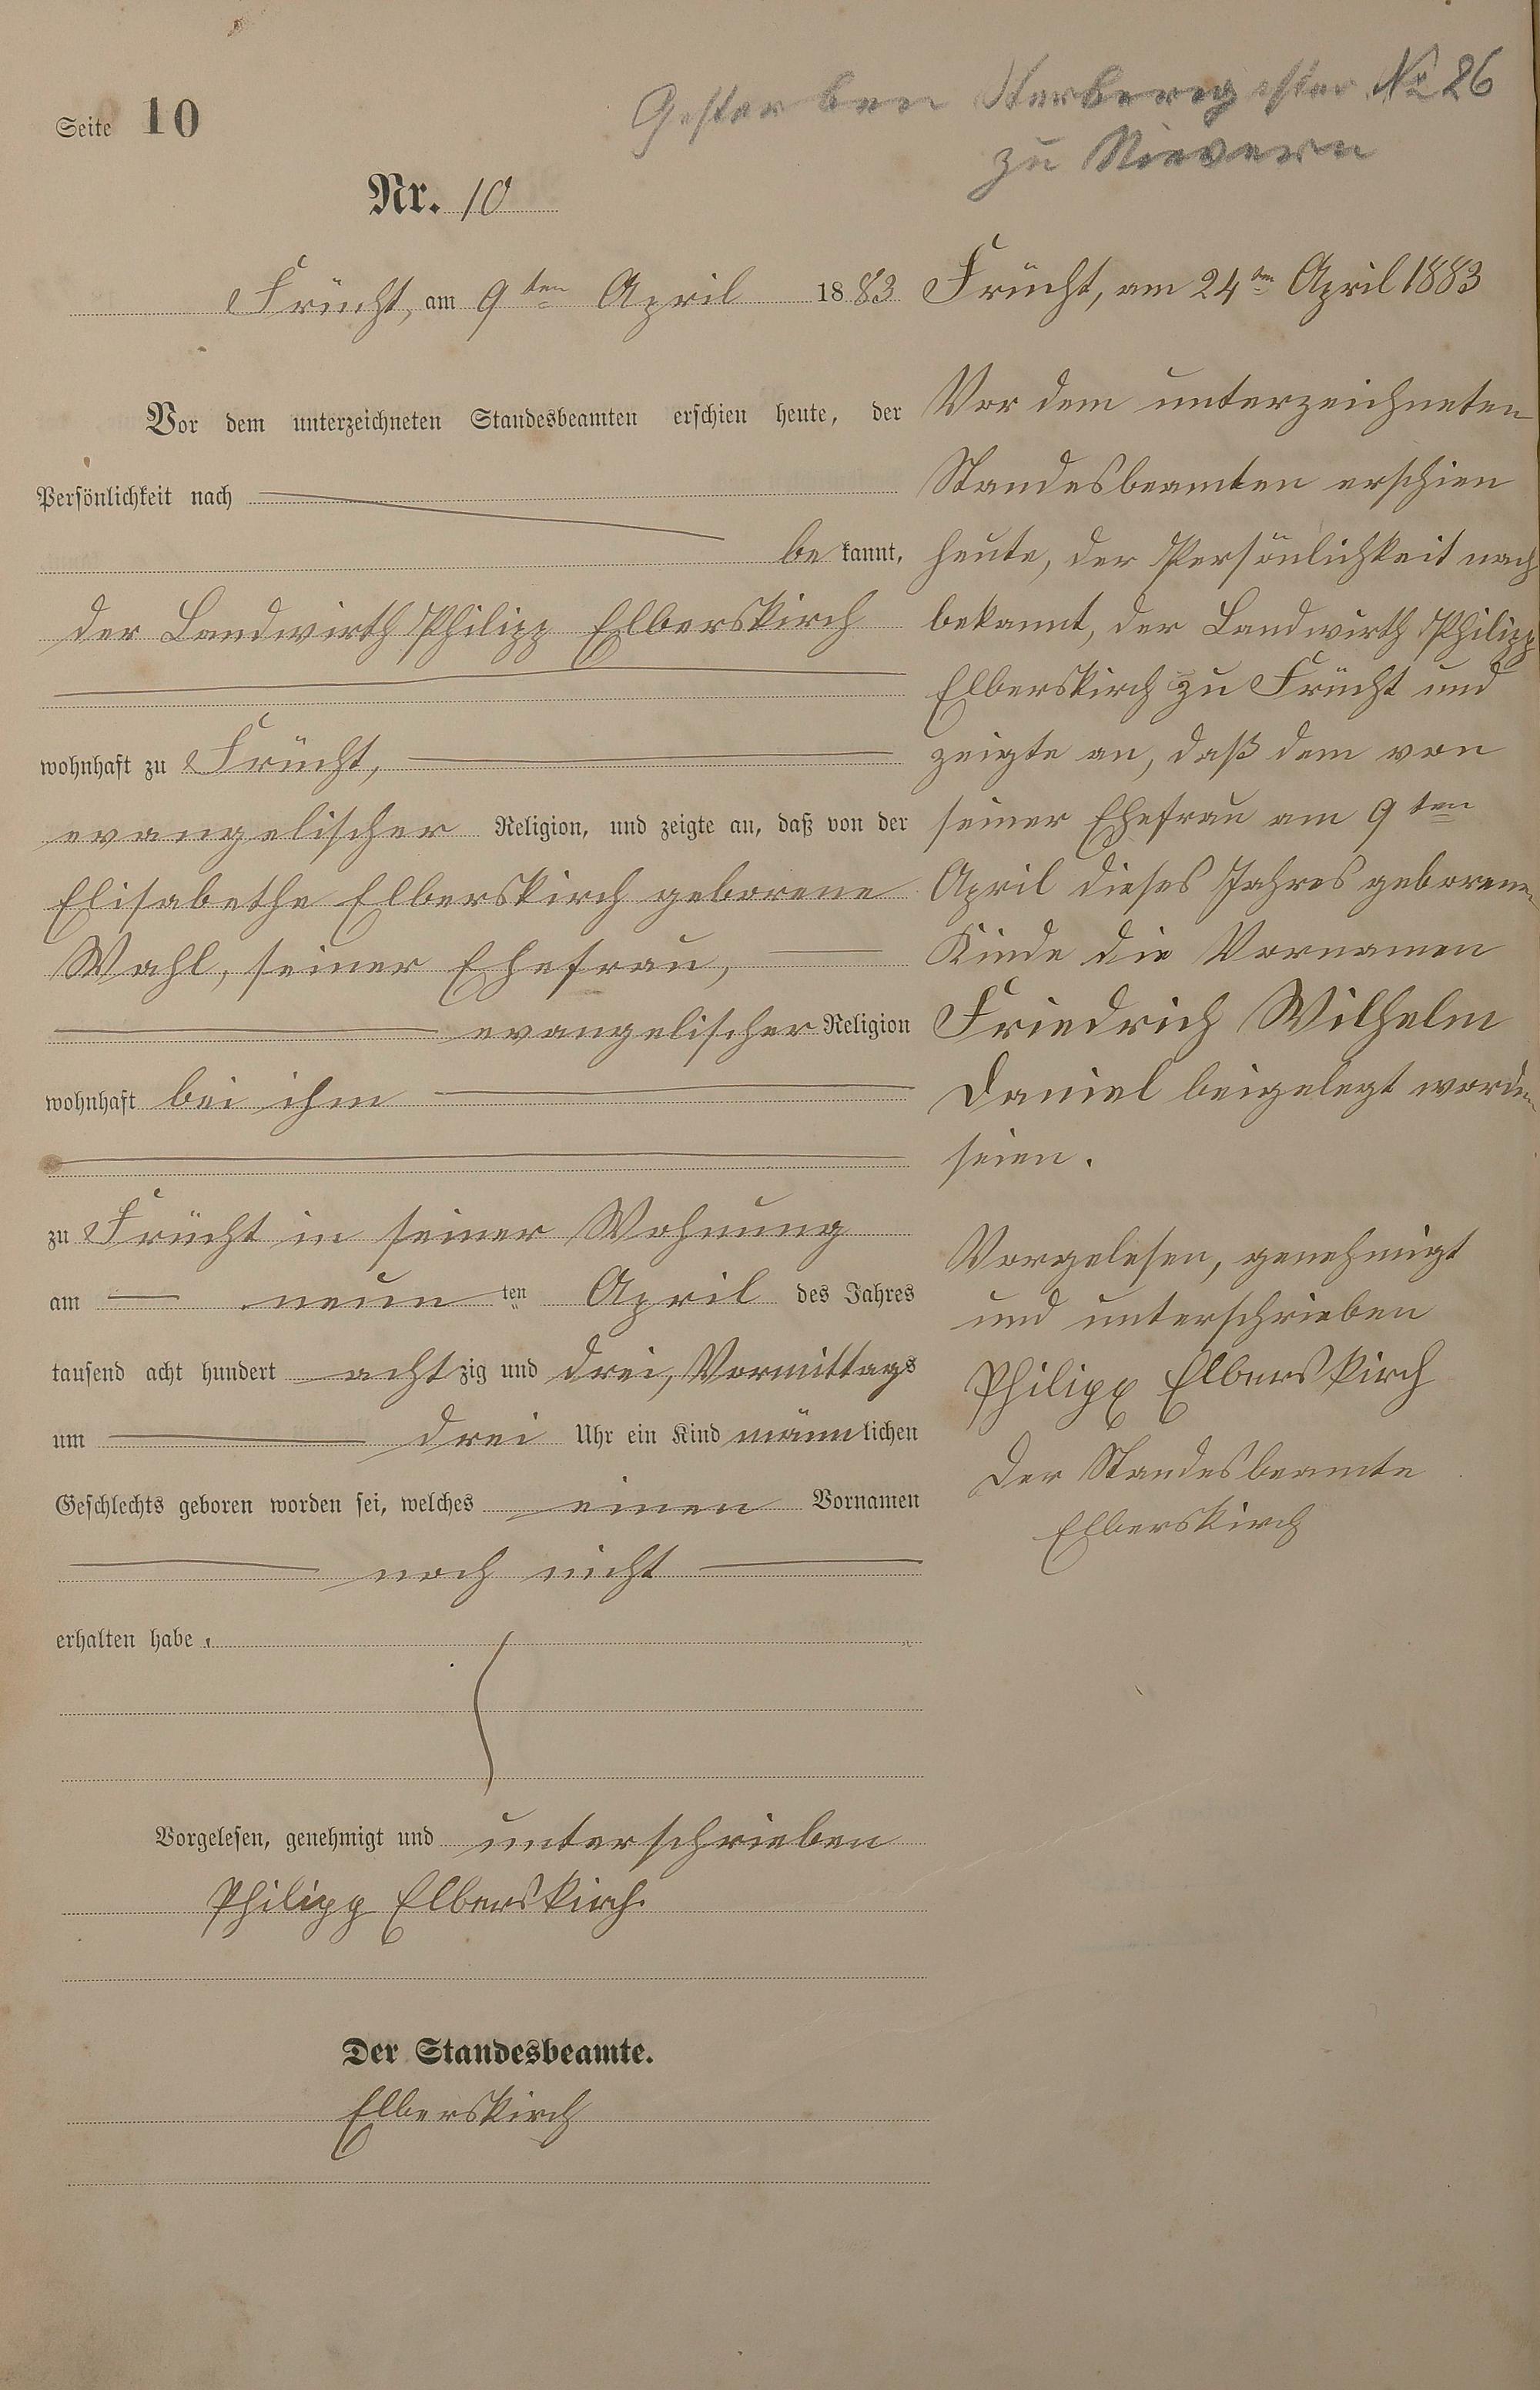 Seite 10
Gestorben Sterberegister No 26
zu Nievern
Nr. 10
Frücht, am 9ten April 1883
Vor dem unterzeichneten Standesbeamten erschien heute, der
Persönlichkeit nach
be kannt,
der Landwirth Philipp Elberskirch
wohnhaft zu Frücht,
evangelischer Religion, und zeigte an, daß von der
Elisabethe Elberskirch geborene
Wahl, seiner Ehefrau,
evangelischer Religion
wohnhaft bei ihm
zu Frücht in seiner Wohnung
am neun ten April des Jahres
tausend acht hundert achtzig und drei, Vormittags
um drei Uhr ein Kind männlichen
Geschlechts geboren worden sei, welches einen Vornamen
noch nicht
erhalten habe.
Vorgelesen, genehmigt und unterschrieben
Philipp Elberskirch.
Der Standesbeamte.
Elberskirch
Frücht, am 24ten April 1883
Vor dem unterzeichneten
Standesbeamten erschien
heute, der Persönlichkeit nach
bekannt, der Landwirth Philipp
Elberskirch zu Frücht und
zeigte an, daß dem von
seiner Ehefrau am 9ten
April dieses Jahres geborenen
Kinde die Vornamen
Friedrich Wilhelm
Daniel beigelegt worden
seien.
Vorgelesen, genehmigt
und unterschrieben
Philipp Elberskirch
Der Standesbeamte
Elberskirch